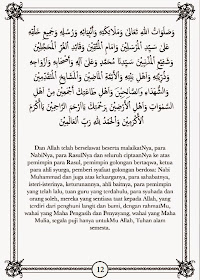 وَصَلَوَاتُ اللهِ تَعَالَى وَمَلَائِكَتِهِ وَأَنْبِيَائِهِ وَرُسُلِهِ وَجَمِيْعِ خَلْقِهِ
عَلَى سَيِّدِ الْمُرْسَلِيْنَ وَإِمَامِ الْمُتَّقِيْنَ وَقَائِدِ الْغُرِّ الْمُحَجَّلِيْنَ
وَشَفِيْعِ الْمُذْنِبِيْنَ سَيِّدِنَا مُحَمَّدٍ وَعَلَى آلِهِ وَأَصْحَابِهِ وَأَزْوَاجِهِ
وَذُرِّيَّتِهِ وَأَهْلِ بَيْتِهِ وَالْأَئِمَّةِ الْمَاضِيْنَ وَالْمَشَايِخِ الْمُتَقَدِّمِيْنَ
وَالشُّهَدَاءِ وَالصَّالِحِيْنَ وَأَهْلِ طَاعَتِكَ أَجْمَعِيْنَ مِنْ أَهْلِ
السَّمٰوَاتِ وَأَهْلِ الْأَرَضِيْنَ بِرَحْمَتِكَ يَا أَرْحَمَ الرَّاحِمِيْنَ يَا أَكْرَمَ
الْأَكْرَمِيْنَ وَالْحَمْدُ لِلّٰهِ رَبِّ الْعَالَمِيْنَ
Dan Allah telah berselawat beserta malaikatNya, para
NabiNya, para RasulNya dan seluruh ciptaanNya ke atas
pemimpin para Rasul, pemimpin golongan bertaqwa, ketua
para ahli syurga, pemberi syafaat golongan berdosa: Nabi
Muhammad dan juga atas keluarganya, para sahabatnya,
isteri-isterinya, keturunannya, ahli baitnya, para pemimpin
yang telah lalu, para orang yang terdahulu, para syuhada dan
orang soleh, mereka yang sentiasa taat kepada Allah, yang
terdiri dari penghuni langit dan bumi, dengan rahmatMu,
wahai yang Maha Pengasih dan Penyayang, wahai yang Maha
Mulia, segala puji hanya untukMu Allah, Tuhan alam
semesta.
12